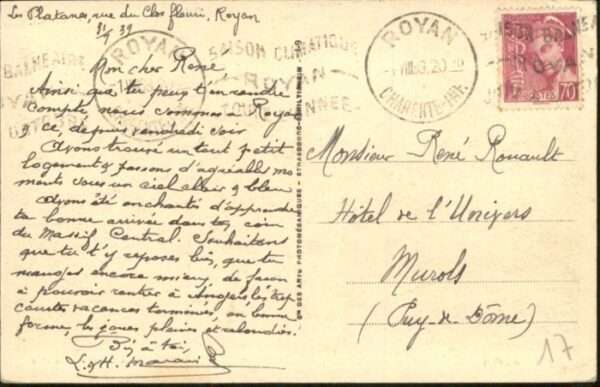 Les Platanes, rue du Clos fleuri, Royan
1/8/39
Mon cher René
Ainsi que tu peux t'en rendre
compte nous sommes à Royan
& ce, depuis vendredi soir
Avons trouvé un tout petit
logement & passons d'agréables mo
ments sous un ciel clair & bleu
Avons été enchantés d'apprendre
ta bonne arrivée dans ton coin
du Massif Central. Souhaitons
que tu t'y reposes bien, que tu
manges encore mieux de façon
à pouvoir rentrer à Angers, les trop
courtes vacances terminées, en bonne
forme, les joues pleines et rebondies.
Bi à toi,
L & H.
ROYAN
SAISON CLIMATIQUE
ROYAN
TOUTE L'ANNEE
BALNEAIRE
ROYAN
CHARENTE-INF.
SAISON BALNEAIRE
ROYAN
POSTES 70
CIE DES ARTS PHOTOMÉCANIQUES - STRASBOURG-SCHILTIGHEIM
Monsieur René Rouault
Hôtel de l'Univers
Murols
(Puy-de-Dôme)
17